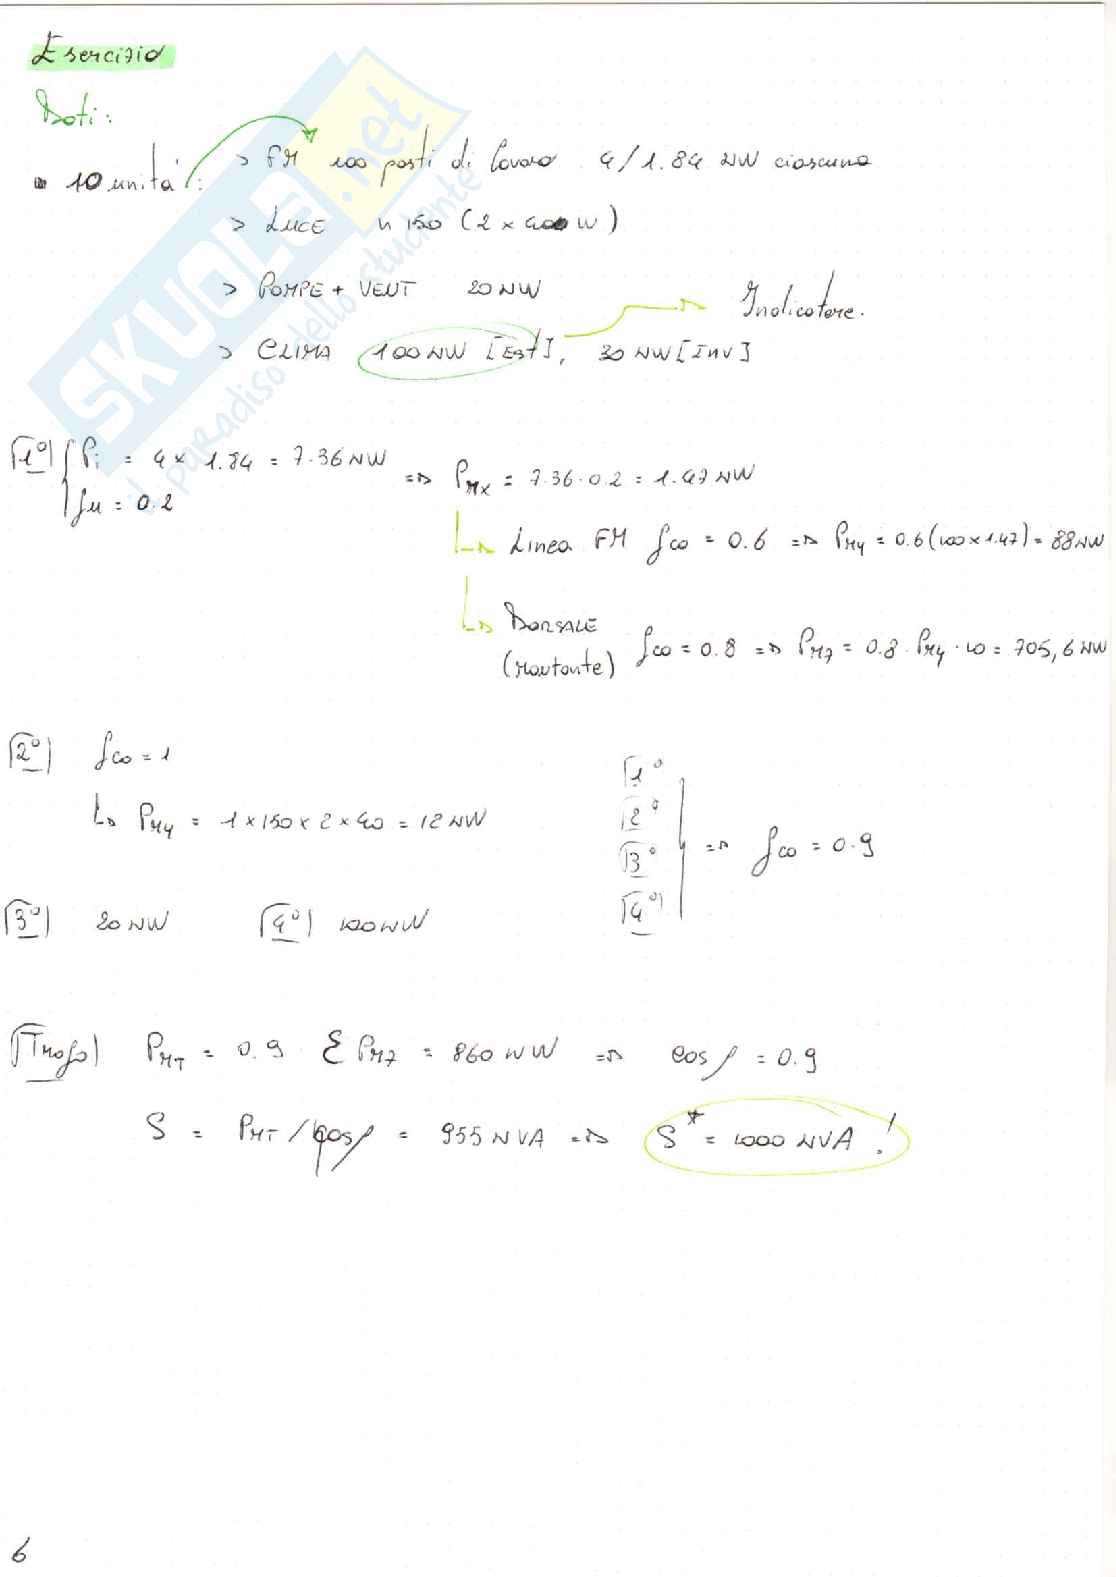 Esercizio
Dati:
10 unità: > FM 100 posti di lavoro 4/1.84 kW ciascuno
> LUCE n 150 (2 × 40 W)
> POMPE + VENT 20 kW
Indicatore.
> CLIMA 100 kW [Est], 30 kW [Inv]
1°) Pi = 4 × 1.84 = 7.36 kW => PMX = 7.36 · 0.2 = 1.47 kW
fu = 0.2
Linea FM fco = 0.6 => PMY = 0.6 (100 × 1.47) = 88 kW
DORSALE
(Montante) fco = 0.8 => PMZ = 0.8 · PMY · 10 = 705,6 kW
2°) fco = 1
PMY = 1 × 150 × 2 × 40 = 12 kW
1°
2°
3°
4°) => fco = 0.9
3°) 20 kW 4°) 100 kW
Trafo) PMT = 0.9 · Σ PMZ = 860 kW => cosφ = 0.9
S = PMT / cosφ = 955 kVA => S* = 1000 kVA !
6
SKUOLA.net
il paradiso dello studente